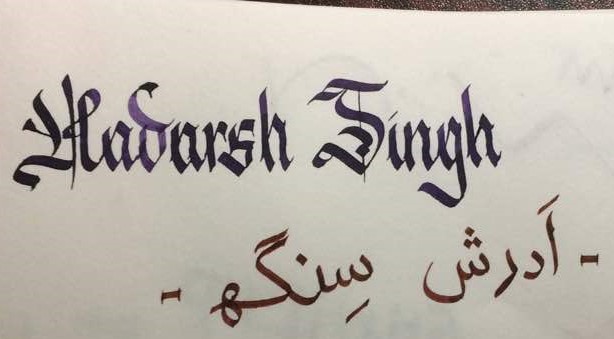 Aadarsh Singh
- اَدرش سِنگھ -